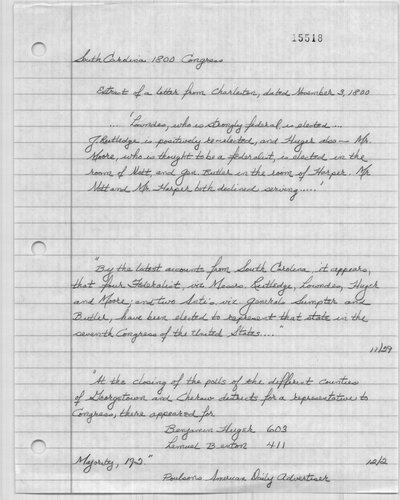 15518
South Carolina 1800 Congress
Extract of a letter from Charleston, dated November 3, 1800
.... Lowndes, who is strongly federal, is elected ....
J. Rutledge is positively reelected, and Huger also — Mr.
Moore, who is thought to be a federalist, is elected in the
room of Nott, and Gen. Butler in the room of Harper. Mr.
Nott and Mr. Harper both declined serving.....'
"By the latest accounts from South Carolina, it appears,
that four Federalists, viz Messrs. Rutledge, Lowndes, Huger
and Moore; and two Anti's, viz Generals Sumpter and
Butler, have been elected to represent that state in the
seventh Congress of the United States...."
11/29
"At the closing of the polls of the different counties
of Georgetown and Cheraw districts for a representative to
Congress, there appeared for
Benjamin Huger 603
Lemuel Benton 411
Majority, 192"
12/2
Poulsons American Daily Advertiser